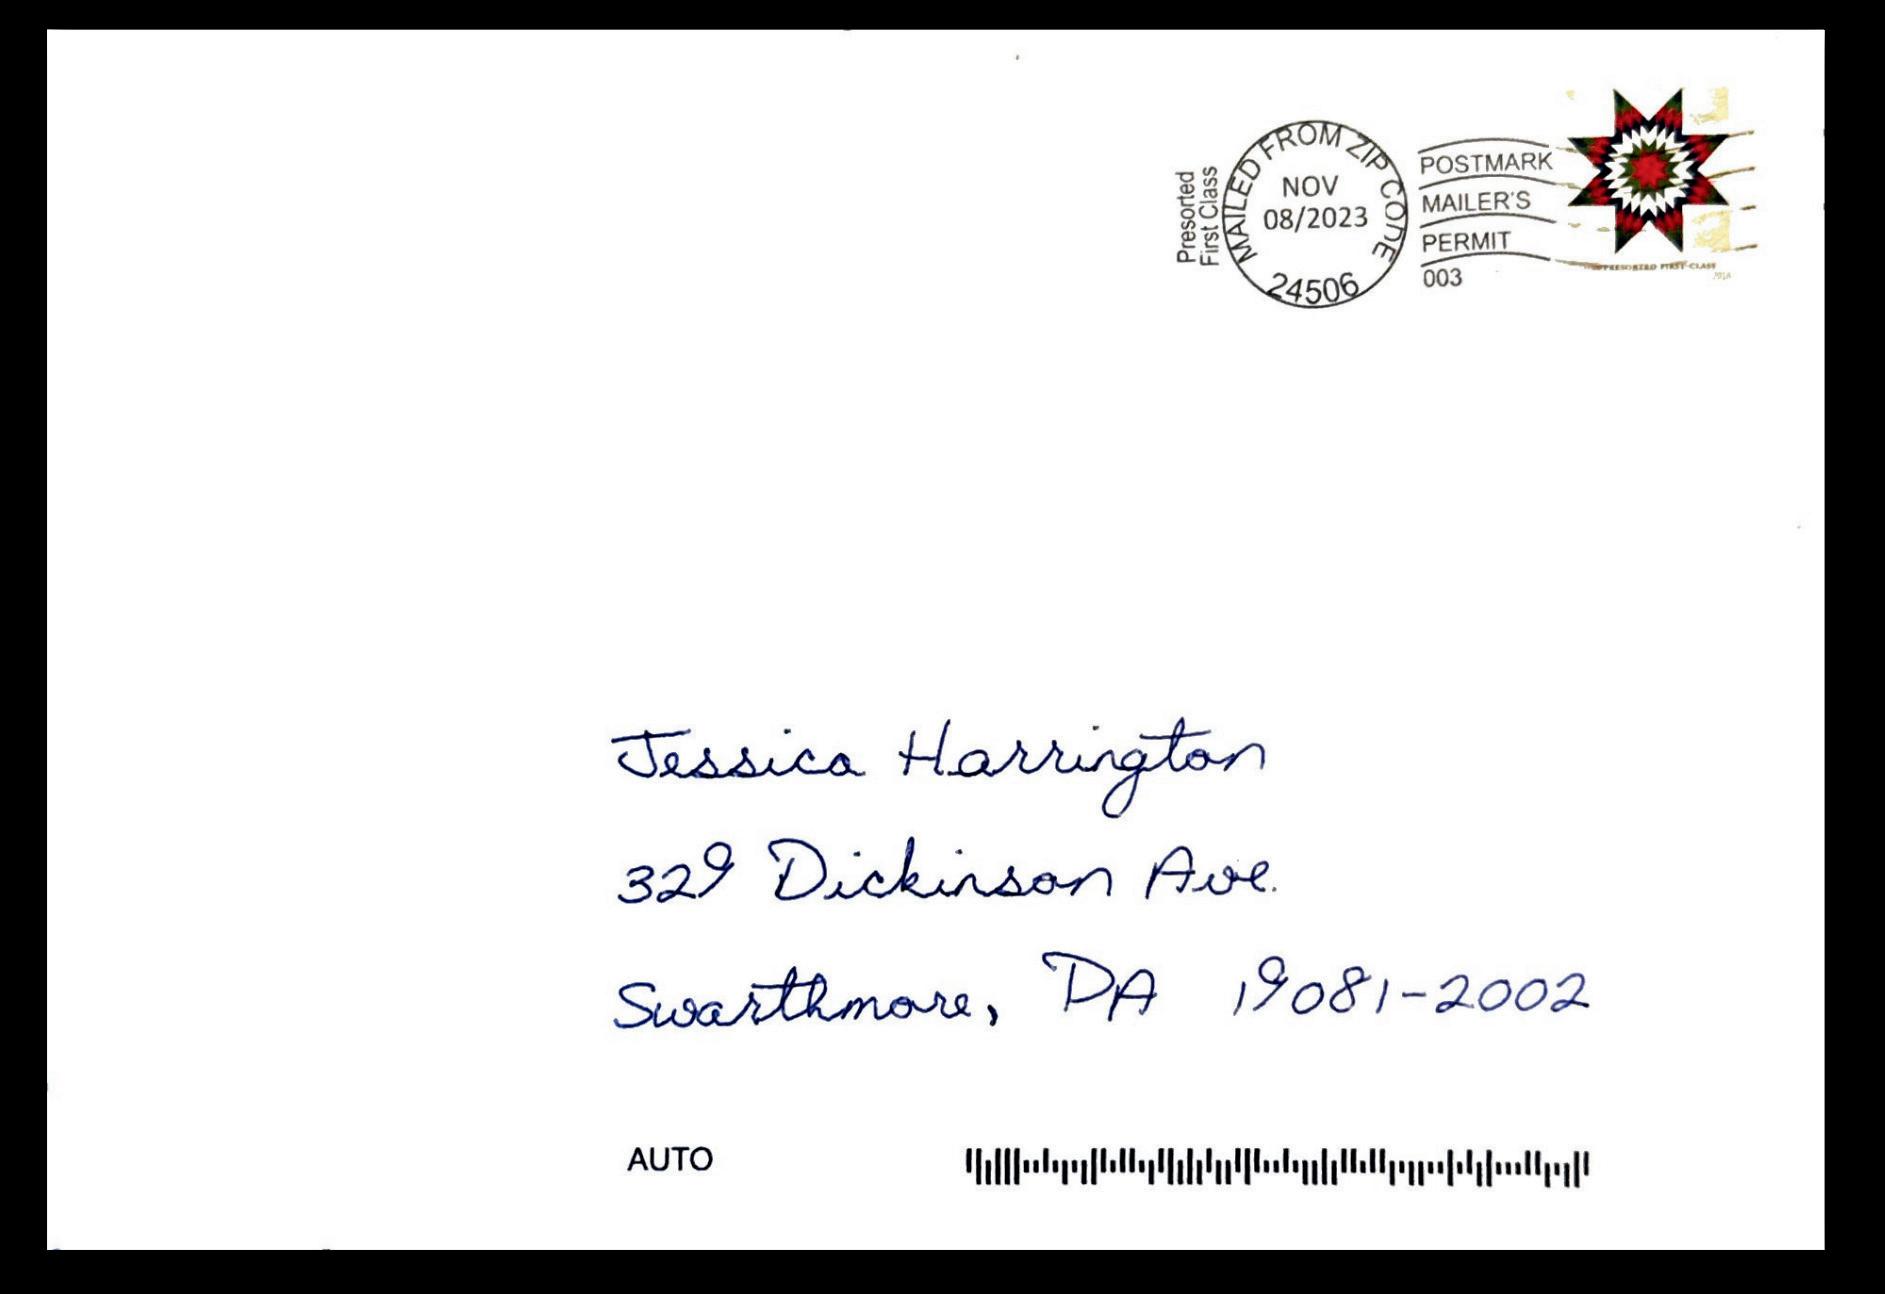 Presorted
First Class
MAILED FROM ZIP CODE
NOV
08/2023
24506
POSTMARK
MAILER'S
PERMIT
003
PRESORTED FIRST-CLASS
Jessica Harrington
329 Dickinson Ave.
Swarthmore, PA 19081-2002
AUTO